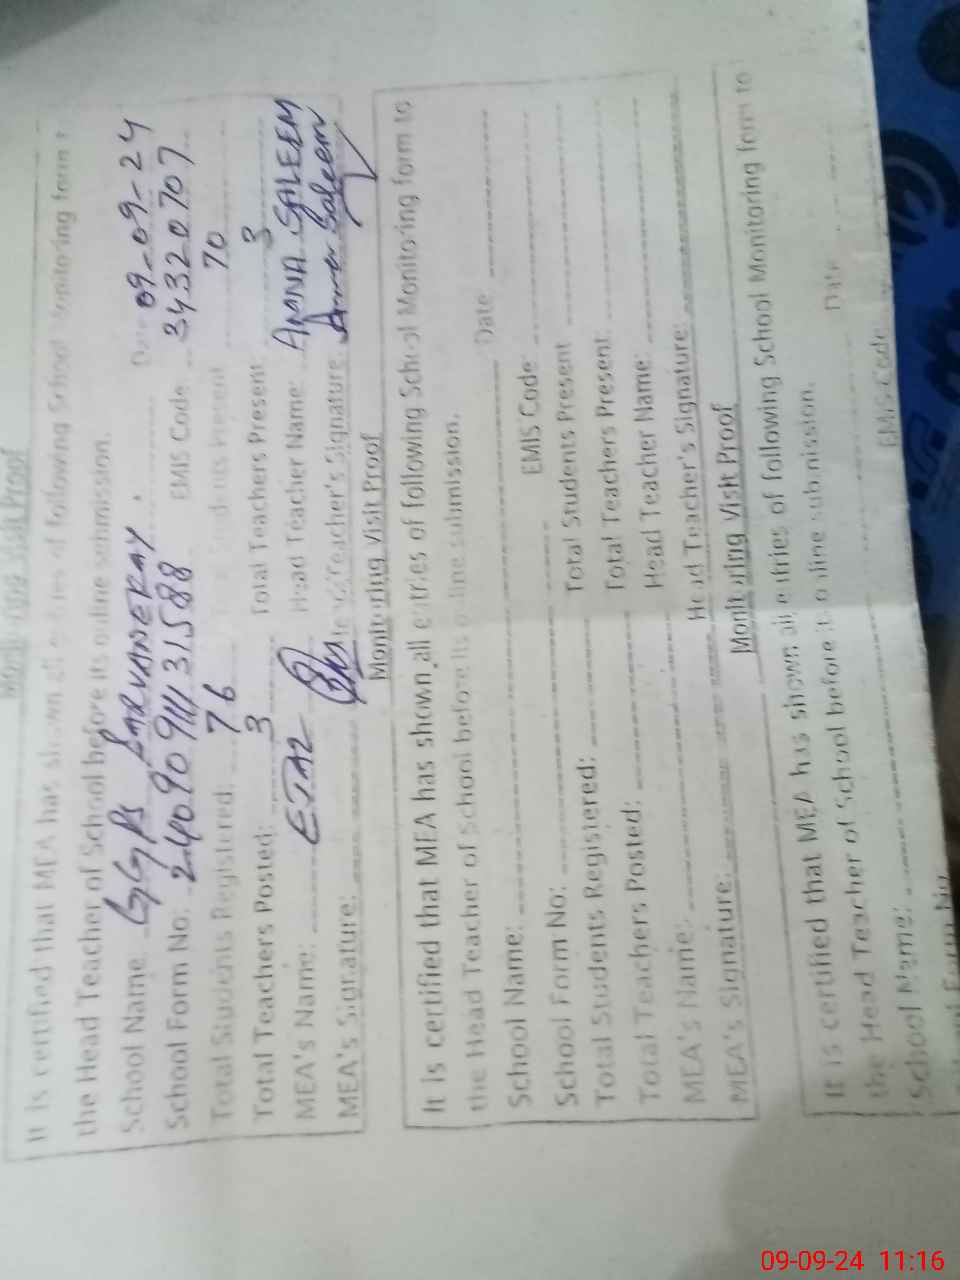 Monitoring Visit Proof
It is certified that MEA has shown all entries of following School Monitoring form to
the Head Teacher of School before its online submission.
School Name GGPS SARVANEKAY Date 09-09-24
School Form No: EMIS Code 34320707
Total Students Registered: 76 Total Students Present 70
Total Teachers Posted: 3 Total Teachers Present: 3
MEA's Name: Head Teacher Name: AMNA SALEEM
MEA's Signature: Head Teacher's Signature: Amna Saleem
Monitoring Visit Proof
It is certified that MEA has shown all entries of following School Monitoring form to
the Head Teacher of School before its online submission.
School Name: Date
School Form No: EMIS Code
Total Students Registered: Total Students Present
Total Teachers Posted: Total Teachers Present:
MEA's Name: Head Teacher Name:
MEA's Signature: Head Teacher's Signature:
Monitoring Visit Proof
It is certified that MEA has shown all entries of following School Monitoring form to
the Head Teacher of School before its online submission.
School Name: Date
School Form No EMIS Code
09-09-24 11:16